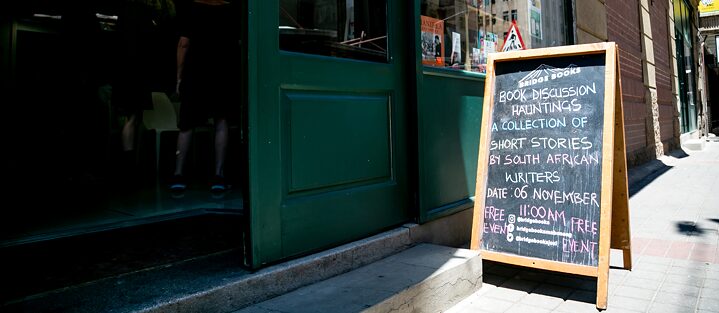 BRIDGE BOOKS
BOOK DISCUSSION
HAUNTINGS
A COLLECTION OF
SHORT STORIES
BY SOUTH AFRICAN
WRITERS
DATE: 06 NOVEMBER
11:00AM
FREE EVENT
FREE EVENT
@bridgebooks